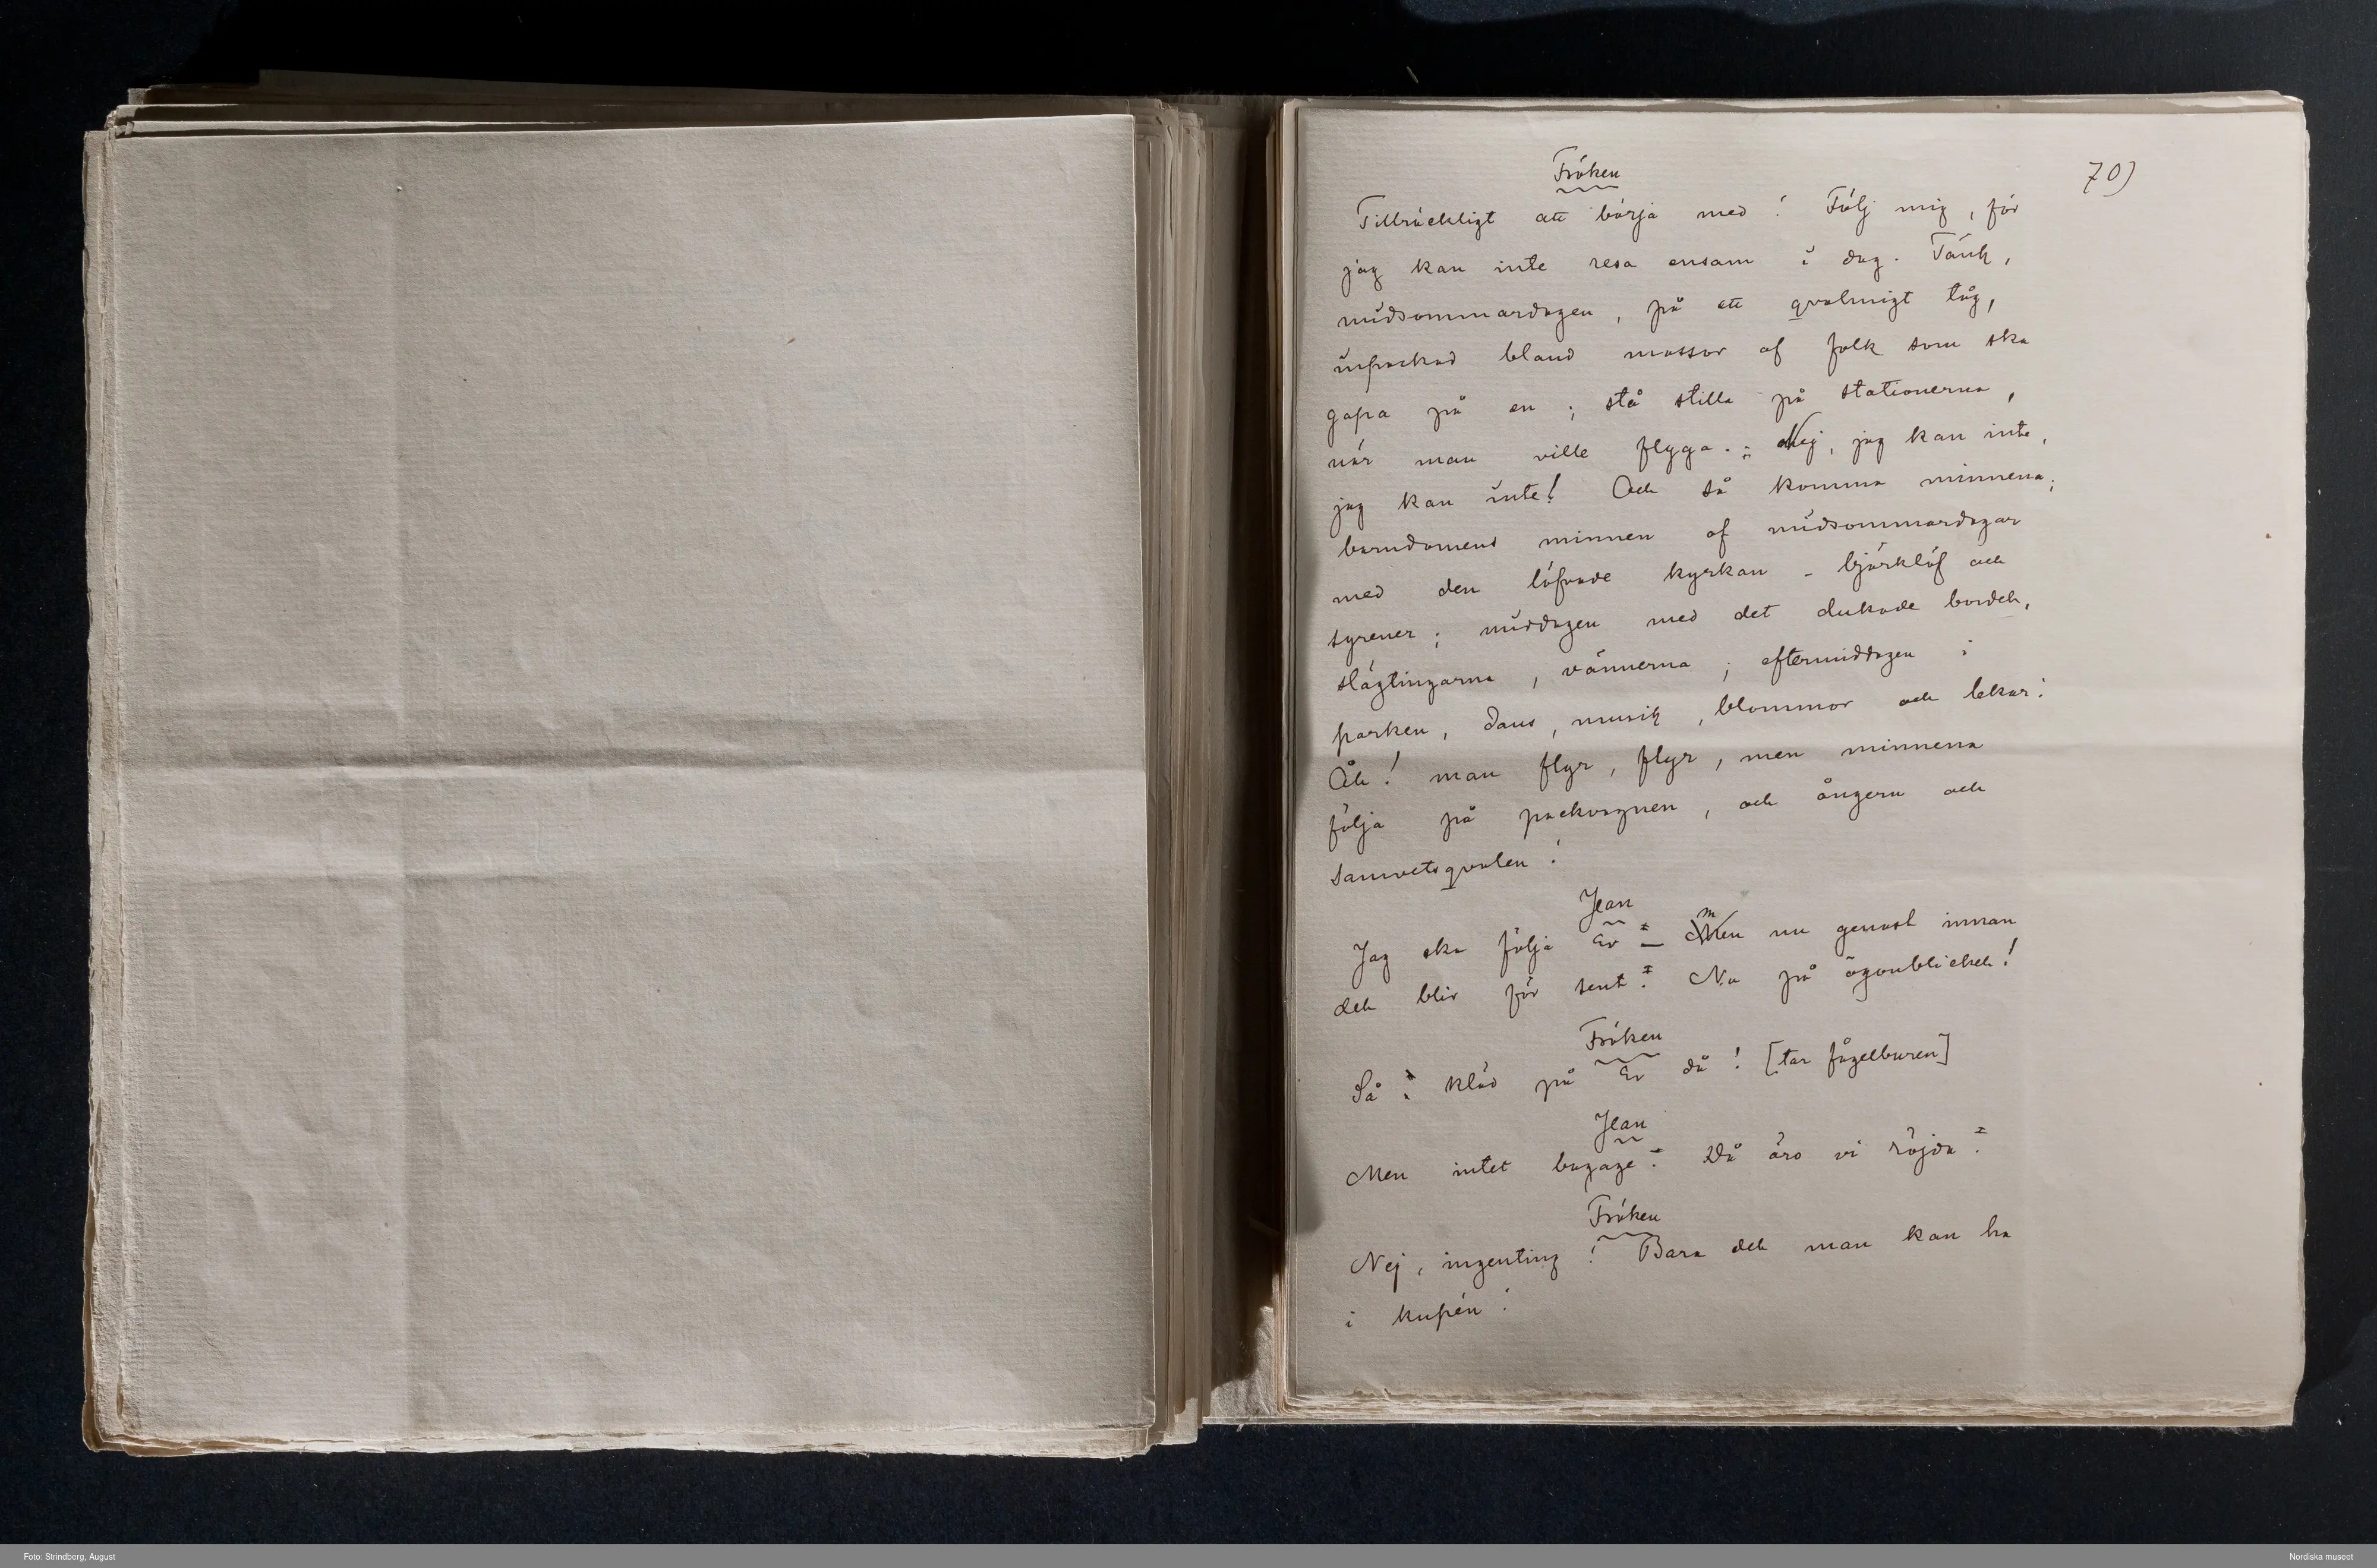 70)
Fröken
Tillräckligt att börja med! Följ mig, för
jag kan inte resa ensam i dag. Tänk,
midsommardagen, på ett qvalmigt tåg,
inpackad bland massor af folk som ska
gapa på en; stå stilla på stationerna,
när man ville flyga. Nej, jag kan inte,
jag kan inte! Och så komma minnena;
barndomens minnen af midsommardagar
med den löfvade kyrkan – björklöf och
syrener; middagen med det dukade bordet,
slägtingarna, vännerna; eftermiddagen i
parken, dans, musik, blommor och lekar!
Åh! man flyr, flyr, men minnena
följa på packvagnen, och ångern och
samvetsqvalen!
Jean
Jag ska följa Er – men nu genast innan
det blir för sent. Nu på ögonblicket!
Fröken
Så kläd på Er då! [tar fågelburen]
Jean
Men intet bagage! Då äro vi röjda!
Fröken
Nej, ingenting! Bara det man kan ha
i kupén!
Foto: Strindberg, August
Nordiska museet